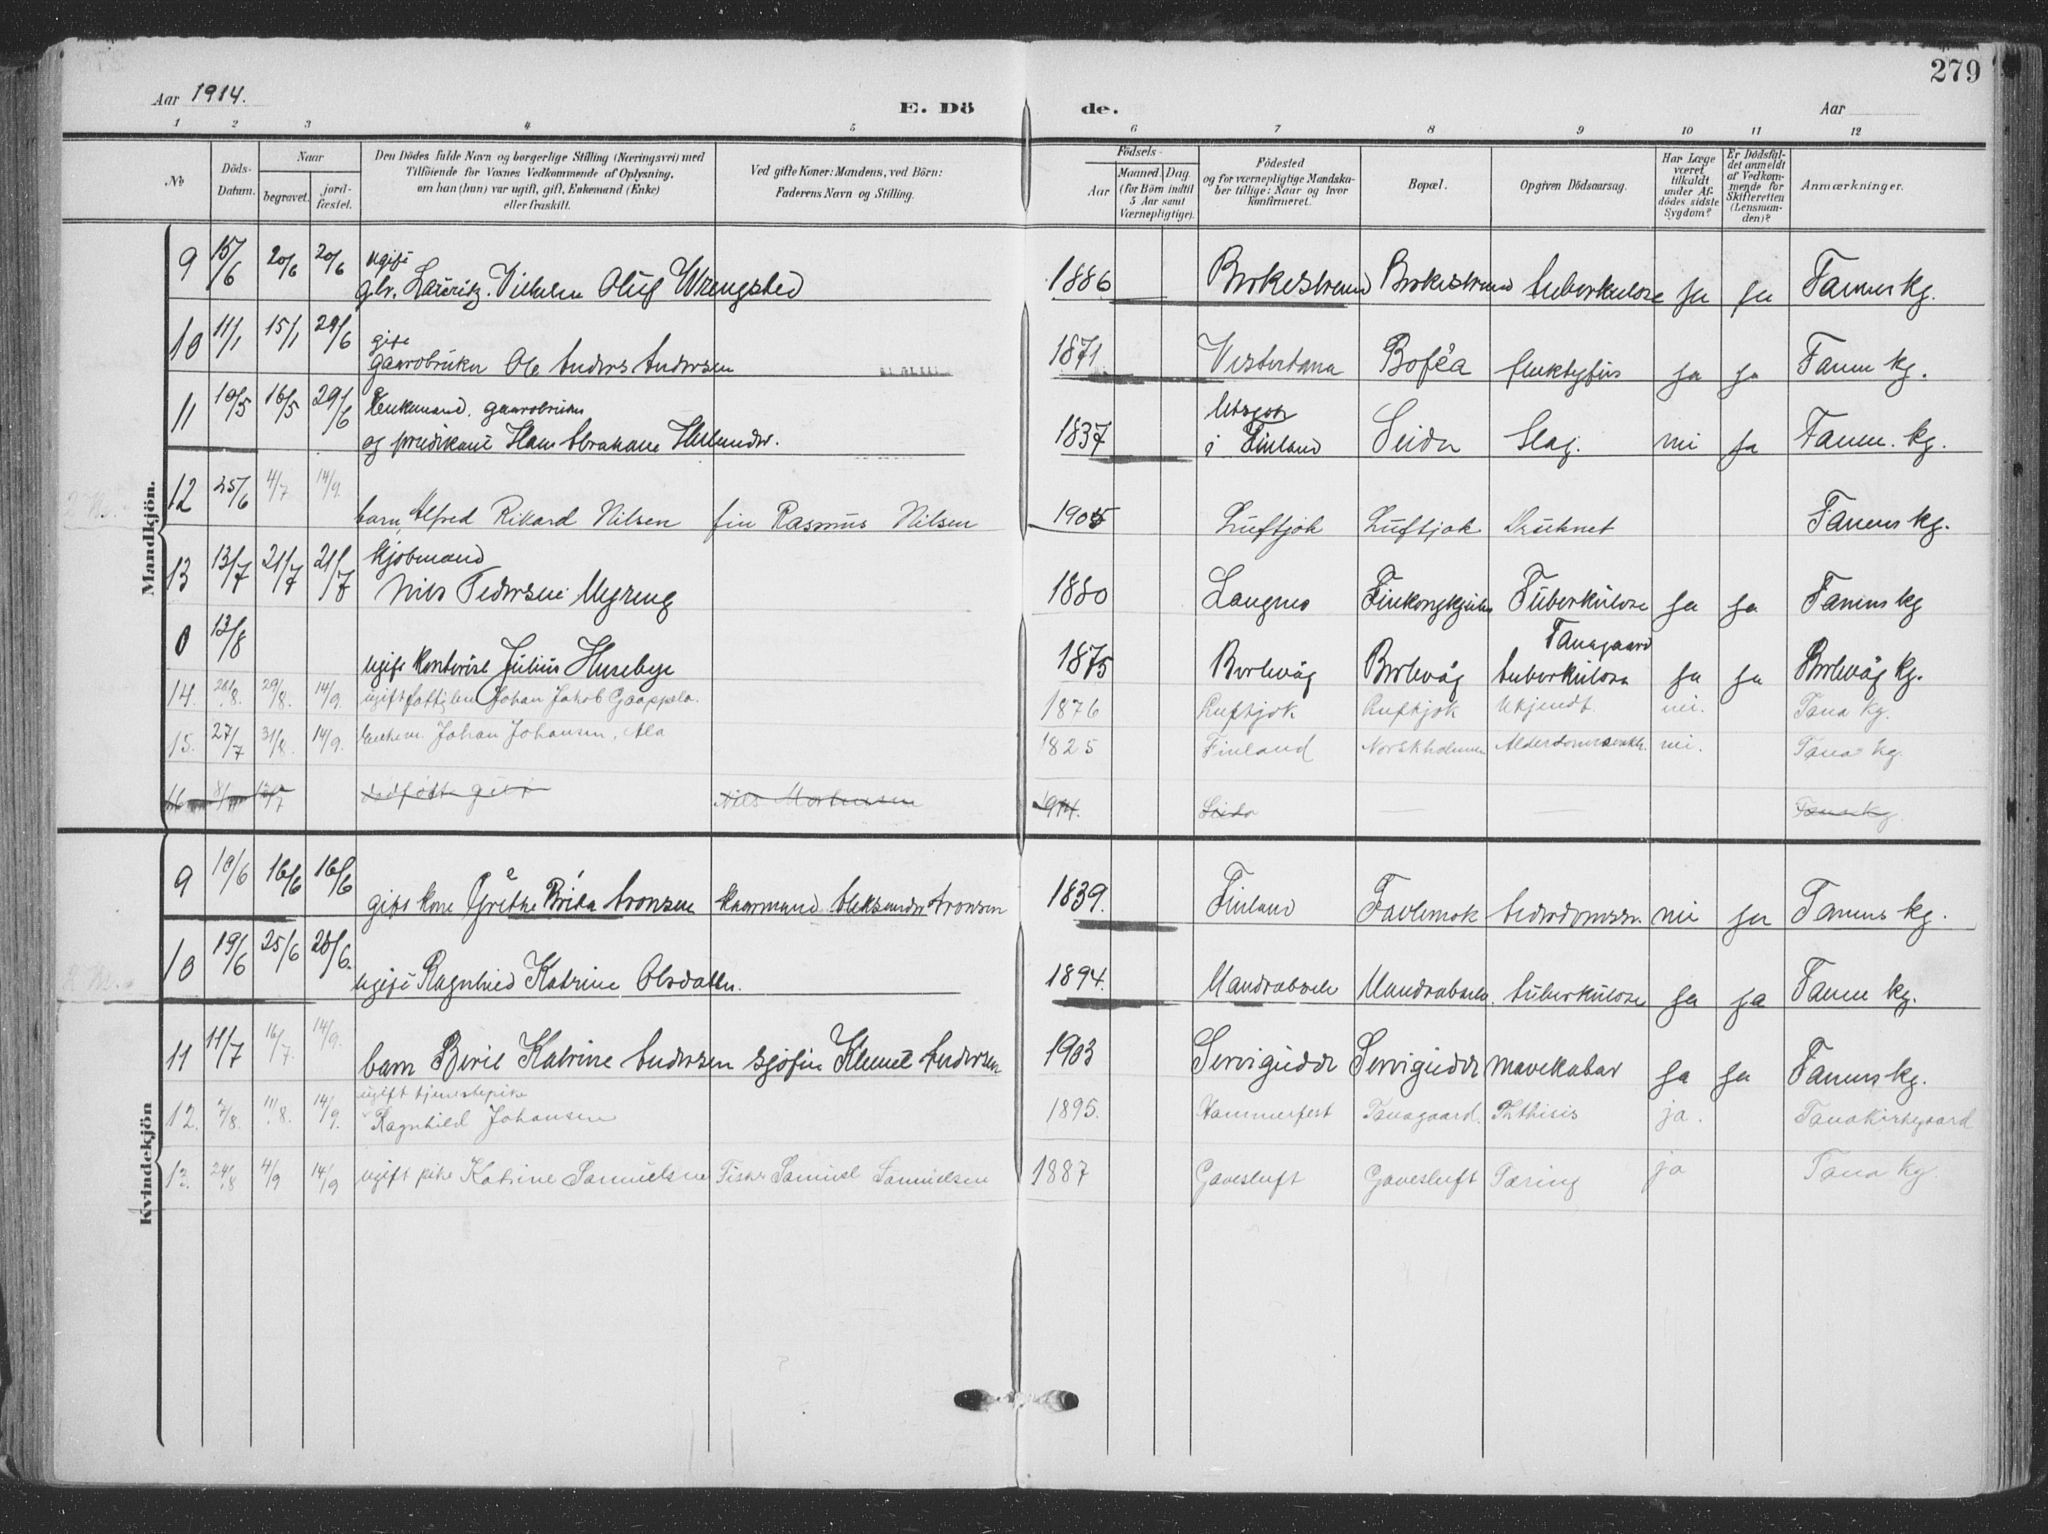 279
Aar 1914.
E. Dö de.
Aar
1 2 3 4 5 6 7 8 9 10 11 12
№
Döds-Datum.
Naar
begravet.
jord-fæstet.
Den Dödes fulde Navn og borgerlige Stilling (Næringsvei) med
Tilföiende for Voxnes Vedkommende af Oplysning,
om han (hun) var ugift, gift, Enkemand (Enke)
eller fraskilt.
Ved gifte Koner: Mandens, ved Börn:
Faderens Navn og Stilling.
Födsels-
Aar
Maaned. Dag.
(for Börn indtil
5 Aar samt
Værnepligtige).
Födested
og for værnepligtige Mandska-
ber tillige: Naar og hvor
konfirmeret.
Bopæl.
Opgiven Dödsaarsag.
Har Læge
været
tilkaldt
under Af-
dödes sidste
Sygdom?
Er Dödsfal-
det anmeldt
af Vedkom-
mende for
Skifteretten
(Lensman-
den)?
Anmærkninger.
Mandkjön.
9 15/6 20/6 20/6 ugift
Vilhelm Oluf 1886 tuberkulose ja ja kg.
10 11/1 15/1 29/6 gift
gaardbruker Ole Anders Andersen 1871 Vestertana ja ja Tanen kg.
11 10/5 16/5 29/6 Enkemand. gaardbruker
og predikant Hans Abraham 1837 Utsjok i Finland Seida Slag. nei ja Tanen. kg.
12 25/6 4/7 14/9.
barn, Alfred Rikard Nilsen fin Rasmus Nilsen 1905 Luftjok Luftjok Druknet Tanens kg.
13 13/7 21/7 21/7 kjøbmand
Nils Pedersen 1880 Langnes Tuberkulose ja ja Tanens kg
0 13/8
ugift kontorist Julius Husebye 1875 Berlevåg Berlevåg Tanagaard tuberkulose ja ja Berlevåg kg.
14. 21/8. 29/8. 14/9. ugift Johan Jakob 1876 Luftjok Luftjok Ukjendt. nei. Tana kg.
15. 27/7 31/8. 14/9. Johan Johansen, Ala 1825 Finland Norskholmen nei. Tana kg.
16 dødfødt gut Nils Mortensen 1914. Seida — — Tana kg.
Kvindekjön
9 10/6 16/6 16/6
gift kone Grethe Brita Aronsen Aleksander Aronsen 1839. Finland nei ja Tanens kg.
10 19/6 25/6 28/6.
ugift Ragnhild Katrine Olsdatter. 1894. tuberkulose ja ja Tanen kg.
11 11/7 16/7. 14/9.
barn Berit Katrine Andersen sjøfin Klemet Andersen 1903 mavekatar ja ja Tanens kg.
ugift tjenestepike
12. 7/8. 11/8. 14/9. Ragnhild Johansen 1895. Hammerfest Tanagaard. Phthisis ja. Tana Kirkegaard
13. 24/8 4/9 14/9 ugift pike Katrine Samuelsen Fisker Samuel Samuelsen 1887 Gavesluft Gavesluft Tæring ja Tana kg.